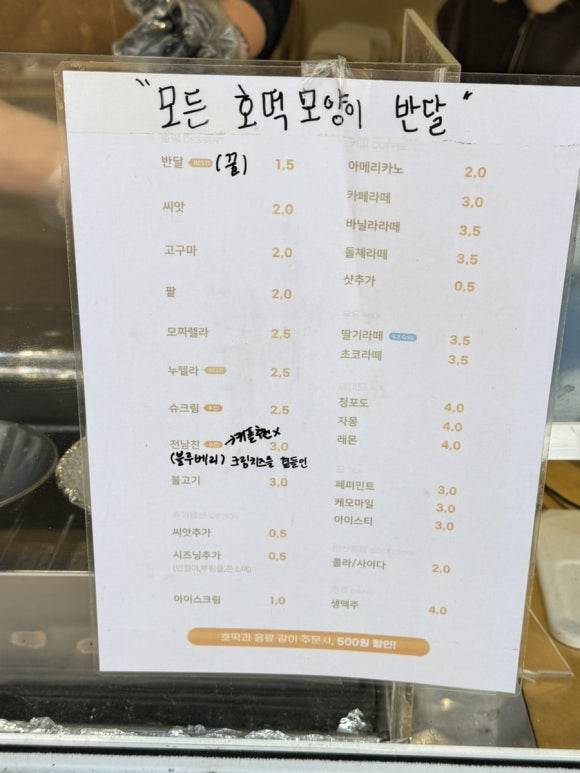 "모든 호떡모양이 반달"
호떡 DESSERT
반달 BEST! (꿀) 1,5
씨앗 2,0
고구마 2,0
팥 2,0
모짜렐라 2,5
누텔라 BEST! 2,5
슈크림 추천! 2,5
전남친 추천! 3,0
(블루베리) 크림치즈을 곁들인
불고기 3,0
추가옵션 OPTION
씨앗추가 0,5
시즈닝추가 0,5
아이스크림 1,0
커피 COFFEE
아메리카노 2,0
카페라떼 3,0
바닐라라떼 3,5
돌체라떼 3,5
샷추가 0,5
우유 MILK
딸기라떼 ICE Only 3,5
초코라떼 3,5
청포도 4,0
자몽 4,0
레몬 4,0
페퍼민트 3,0
케모마일 3,0
아이스티 3,0
콜라/사이다 2,0
생맥주 4,0
호떡과 음료 같이 주문시, 500원 할인!